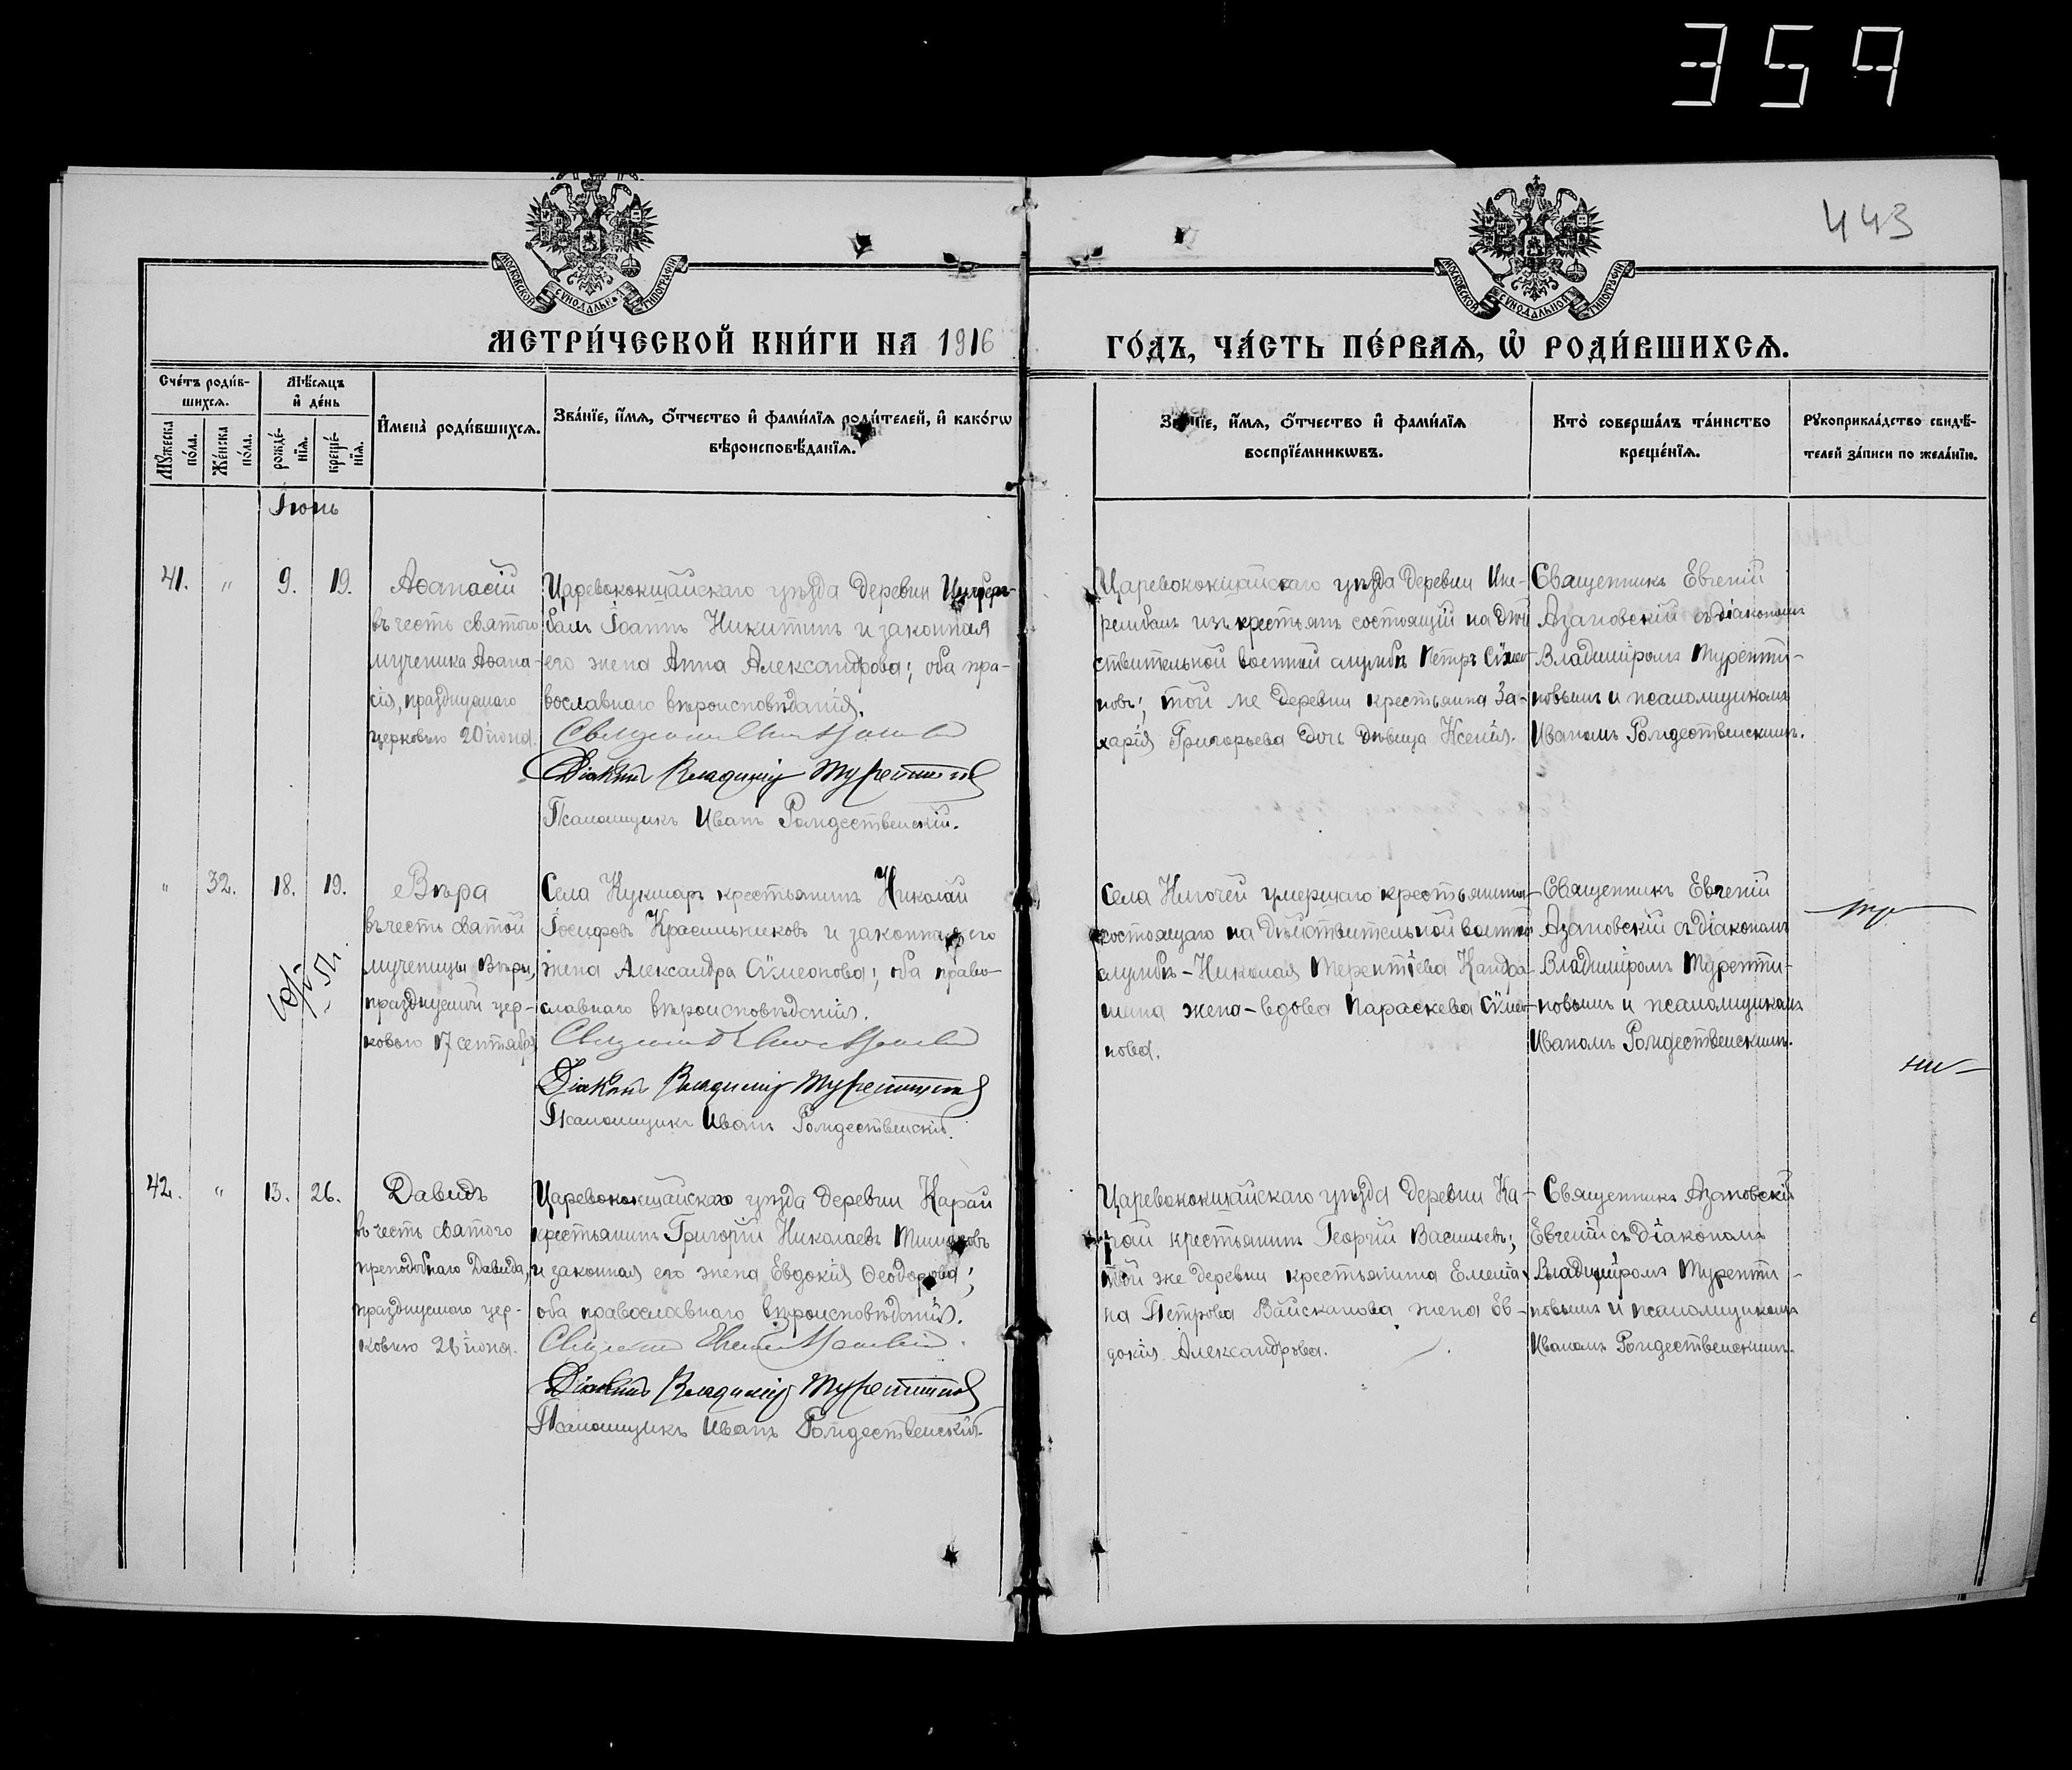 359
443
МОСКОВСКОЙ СѴНОДАЛЬНОЙ ТИПОГРАФІИ
МОСКОВСКОЙ СѴНОДАЛЬНОЙ ТИПОГРАФІИ
МЕТРИ́ЧЕСКОЙ КНИ́ГИ НА 1916
ГО́ДЪ, ЧА́СТЬ ПЕ́РВАѦ, Ѽ РОДИ́ВШИХСѦ.
Сче́тъ роди́в-
шихсѧ.
Мѣ́сѧцъ
и҆ де́нь
Мꙋ́жеска по́ла.
Же́нска по́ла.
рожде́-
нїѧ.
креще́-
нїѧ.
И҆мена̀ роди́вшихсѧ.
Зва́нїе, и҆́мѧ, ѻ҆́тчество и҆ фами́лїѧ роди́телей, и҆ како́гѡ
вѣроисповѣ́данїѧ.
Зва́нїе, и҆́мѧ, ѻ҆́тчество и҆ фами́лїѧ
воспрїе́мникѡвъ.
Кто̀ соверша́лъ та́инство
креще́нїѧ.
Рꙋкоприкла́дство свидѣ́-
телей за́писи по жела́нїю.
Іюнь
41. " 9. 19.
Аѳанасій
въ честь святого
мученика Аѳана-
сія, празднуемаго
церковью 20 іюня.
Царевококшайскаго уѣзда деревни
балъ Іоаннъ Никитинъ и законная
его жена Анна Александрова; оба пра-
вославнаго вѣроисповѣданія.
Діаконъ Владиміръ Турептиновъ
Псаломщикъ Иванъ Рождественскій.
Царевококшайскаго уѣзда деревни
изъ крестьянъ состоящій на дѣй
ствительной военной службѣ Петръ Сѵмео-
новъ; той же деревни крестьянина За-
харія Григорьева дочь дѣвица Ксенія.
Священникъ Евгеній
Азановскій съ діакономъ
Владиміромъ Турепти-
новымъ и псаломщикомъ
Иваномъ Рождественскимъ.
" 32. 18. 19.
Вѣра
въ честь святой
мученицы Вѣры,
празднуемой цер-
ковью 17 сентября
Села Кукмаръ крестьянинъ Николай
Іосифовъ Красильниковъ и законная его
жена Александра Сѵмеонова; оба право-
славнаго вѣроисповѣданія.
Діаконъ Владиміръ Турептиновъ
Псаломщикъ Иванъ Рождественскій.
Села умершаго крестьянина
состоящаго на дѣйствительной военной
службѣ – Николая Терентіева
жена – вдова Параскева Сѵмео-
нова.
Священникъ Евгеній
Азановскій съ діакономъ
Владиміромъ Турепти-
новымъ и псаломщикомъ
Иваномъ Рождественскимъ.
42. " 13. 26.
Давидъ
въ честь святого
преподобнаго Давида,
празднуемаго цер-
ковью 26 іюня.
Царевококшайскаго уѣзда деревни Карай
крестьянинъ Григорій Николаевъ
и законная его жена Евдокія Ѳеодорова;
оба православнаго вѣроисповѣданія.
Діаконъ Владиміръ Турептиновъ
Псаломщикъ Иванъ Рождественскій.
Царевококшайскаго уѣзда деревни Ка-
рай крестьянинъ Георгій Васильевъ;
той же деревни крестьянина Емелія-
на Петрова Вайсканова жена Ев-
докія Александрова.
Священникъ Азановскій
Евгеній съ діакономъ
Владиміромъ Турепти-
новымъ и псаломщикомъ
Иваномъ Рождественскимъ.